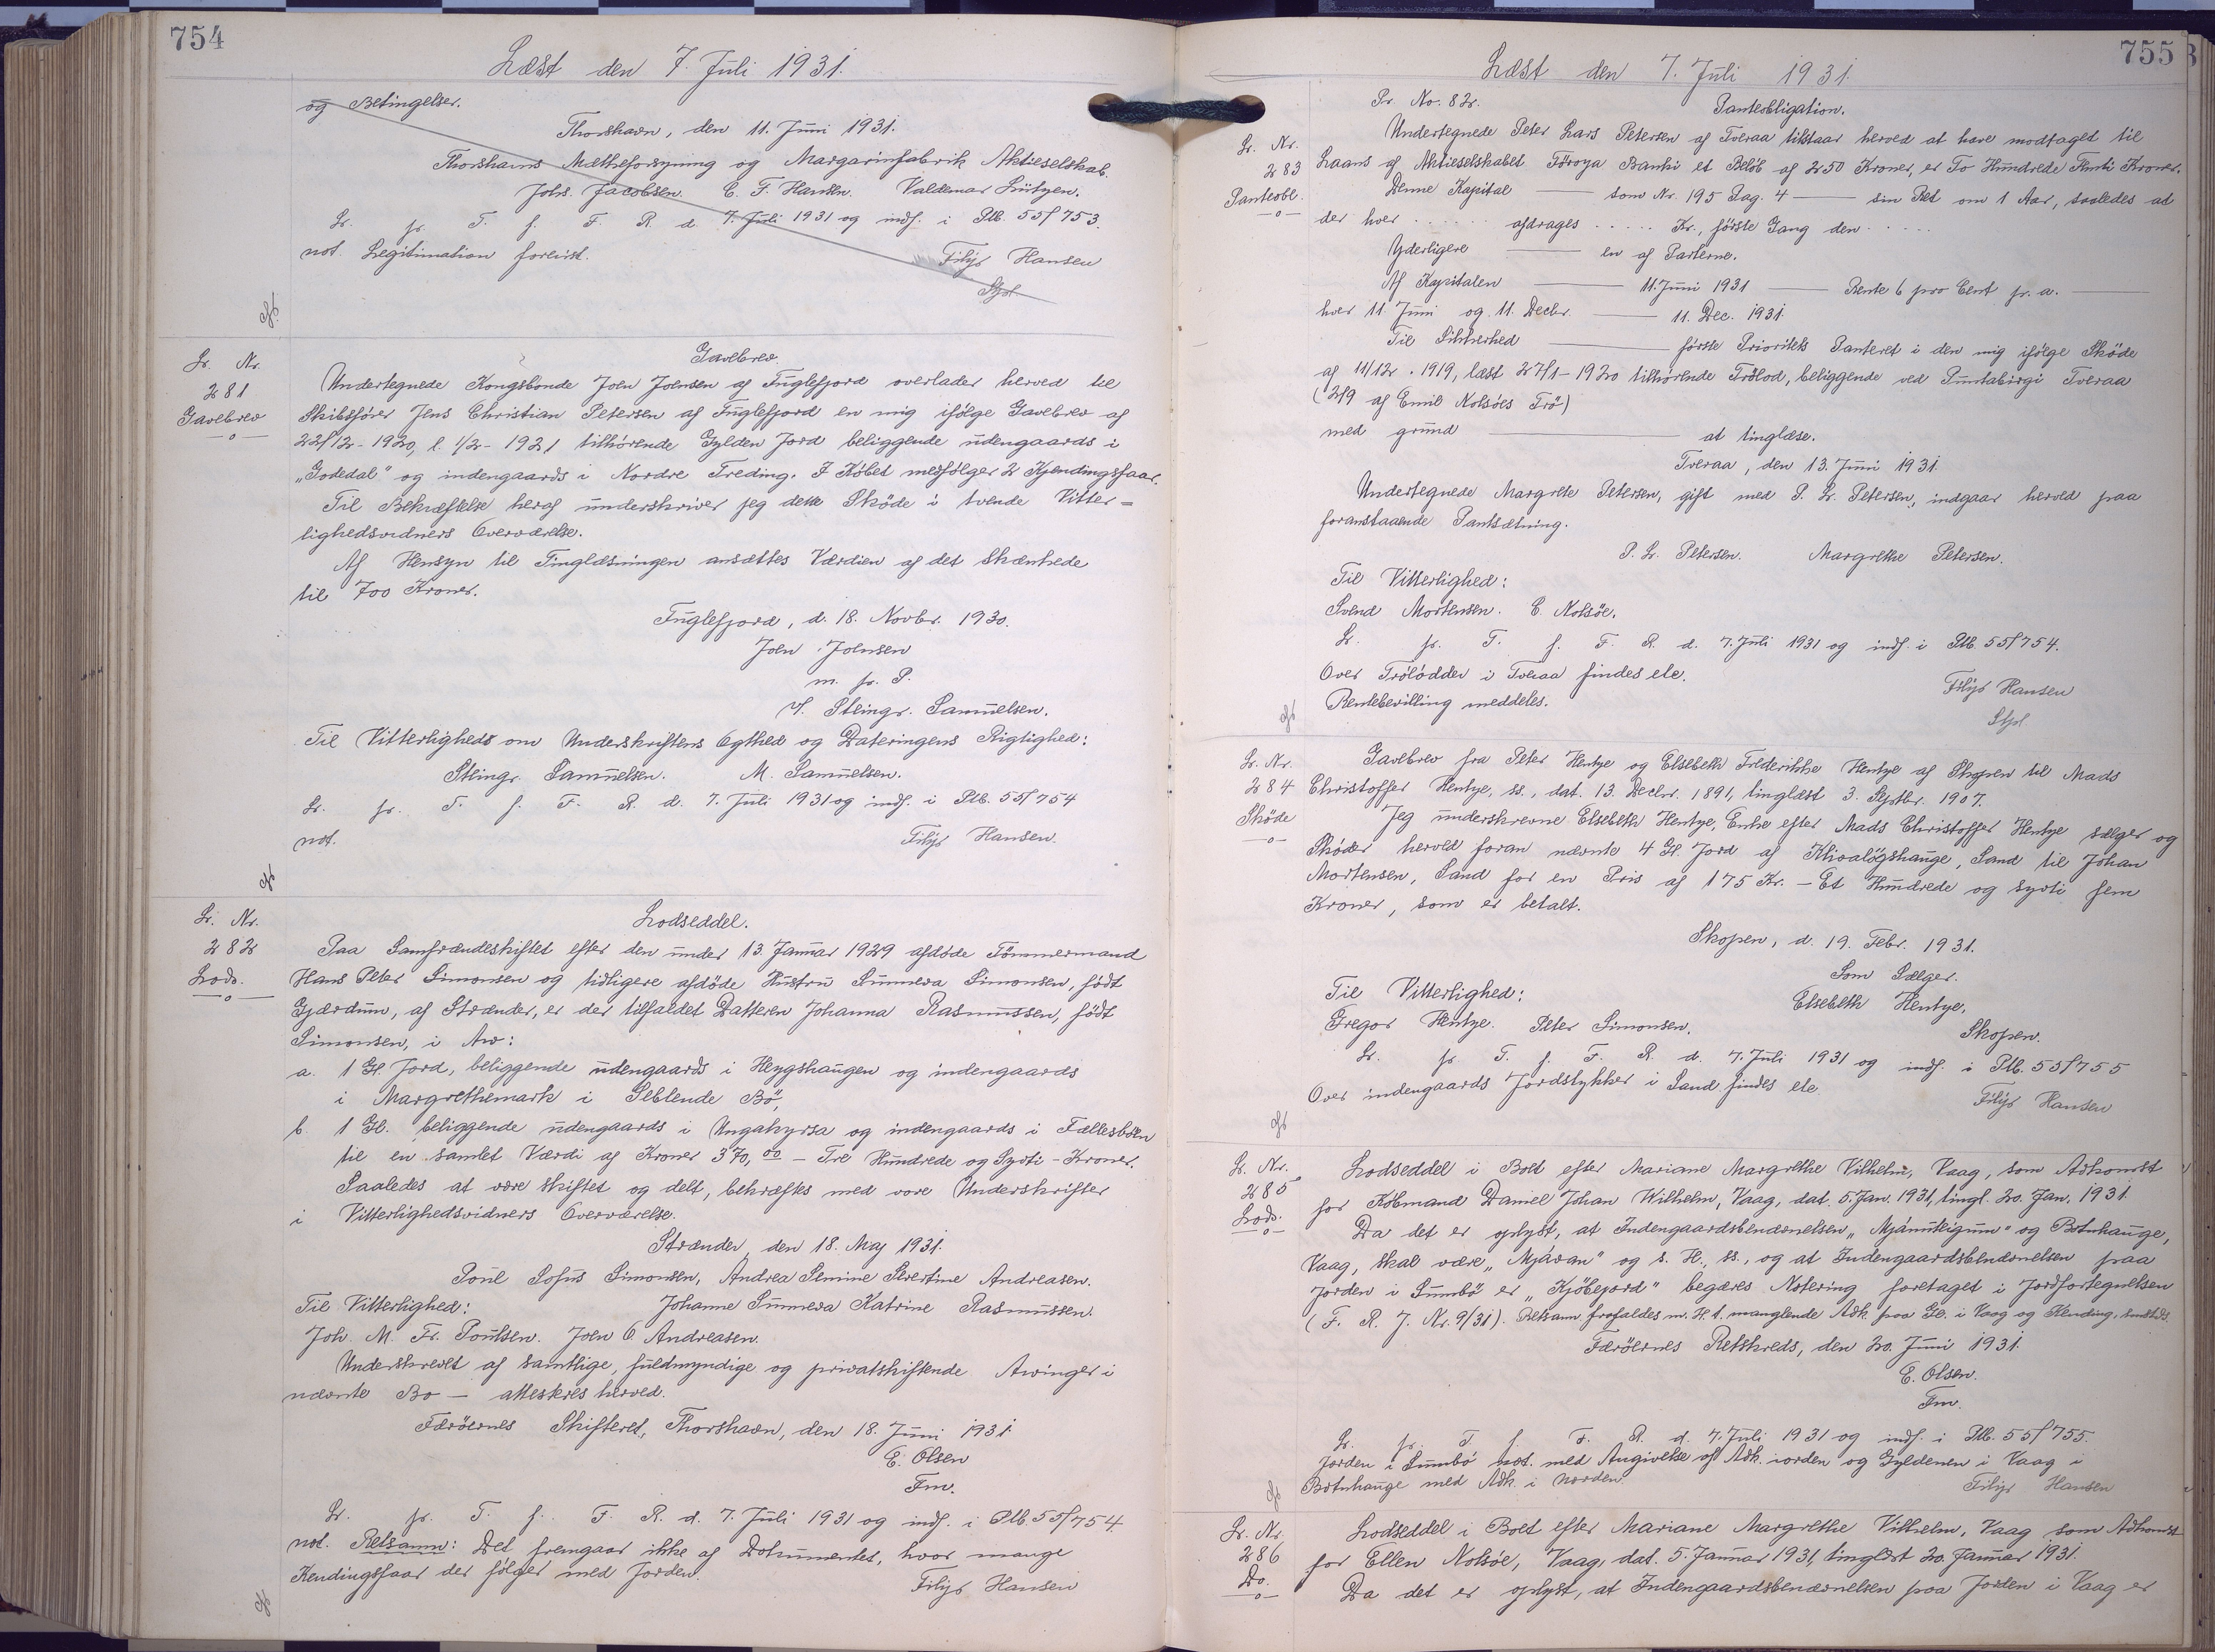 754
Læst den 7. Juli 1931.
og Betingelser.
Thorshavn, den 11. Juni 1931.
Thorshavns Mælkeforsyning og Margarinfabrik Aktieselskab.
Johs. Jacobsen. C. F. Hansen. Valdemar Lützen.
L. pr. T. f. F. R. d. 7. Juli 1931 og indf. i Ptb. 55f 753.
not. Legitimation forevist.
Filip Hansen
Stpl.
L. Nr.
281
Gavebrev
Gavebrev
Undertegnede Kongsbonde Joen Joensen af Fuglefjord overlader herved til
Skibsfører Jens Christian Petersen af Fuglefjord en mig ifølge Gavebrev af
22/12-1920, l. 1/2-1921 tilhørende Gylden Jord beliggende udengaards i
„Godedal" og indengaards i Nordre Treding. I Købet medfølger 2 Kjendingsfaar.
Til Bekræftelse heraf underskriver jeg dette Sköde i tvende Vitter=
lighedsvidners Overværelse.
Af Hensyn til Tinglæsningen ansættes Værdien af det Skænkede
til 700 Kroner.
Fuglefjord, d. 18. Novbr. 1930.
Joen Joensen
m. p. P.
V. Steingr. Samuelsen.
Til Vitterlighed om Underskriftens Ægthed og Dateringens Rigtighed:
Steingr. Samuelsen. M. Samuelsen.
L. pr. T. f. F. R. d. 7. Juli 1931 og indf. i Ptb. 55f 754
not.
Filip Hansen.
L. Nr.
282
Lods.
Lodseddel.
Paa Samfrændeskiftet efter den under 13. Januar 1929 afdøde Tömmermand
Hans Peter Simonsen og tidligere afdöde Hustru Sunneva Simonsen, födt
Gjærdum, af Strænder, er der tilfaldet Datteren Johanna Rasmussen, födt
Simonsen, i Arv:
a. 1 Gl. Jord, beliggende udengaards i Heygshaugen og indengaards
i Margrethemark i Selblende Bö,
b. 1 Gl. beliggende udengaards i Ungakyrsa og indengaards i Fællesböen
til en samlet Værdi af Kroner 370,00 — Tre Hundrede og Sydti - Kroner.
Saaledes at være skiftet og delt, bekræftes med vore Underskrifter
i Vitterlighedsvidners Overværelse.
Strænder, den 18. Maj 1931.
Poul Sofus Simonsen, Andrea Semine Severtine Andreasen.
Til Vitterlighed:
Johanne Sunneva Katrine Rasmussen.
Joh. M. Fr. Poulsen. Joen O. Andreasen.
Underskrevet af samtlige, fuldmyndige og privatskiftende Arvinger i
nævnte Bo — attesteres herved.
Færöernes Skifteret, Thorshavn, den 18. Juni 1931.
E. Olsen
Fm.
L. pr. T. f. F. R. d. 7. Juli 1931 og indf. i Ptb. 55f 754
not. Retsanm: Det fremgaar ikke af Dokumentet, hvor mange
Kendingsfaar der fölger med Jorden.
Filip Hansen
755
Læst den 7. Juli 1931.
Pr. No. 82.
Panteobligation.
L. Nr.
283
Panteobl.
Undertegnede Peter Lars Petersen af Tveraa tilstaar herved at have modtaget til
Laans af Aktieselskabet Föroya Banki et Belöb af 250 Kroner, er To Hundrede Femti Kroner.
Denne Kapital — som Nr. 195 Pag. 4 — sin Ret om 1 Aar, saaledes at
der hver ..... afdrages ..... Kr., förste Gang den .....
Yderligere — en af Parterne.
Af Kapitalen — 11. Juni 1931 — Rente 6 pro Cent pr. a. —
hver 11. Juni og 11. Decbr. — 11. Dec. 1931.
Til Sikkerhed — förste Prioritets Panteret i den mig ifölge Sköde
af 11/12. 1919, læst 27/1-1920 tilhörende Trölod, beliggende ved Puntabirgi Tveraa
(2/9 af Emil Nolsöes Trö)
med grund — at tinglæse.
Tveraa, den 13. Juni 1931.
Undertegnede Margrete Petersen, gift med P. L. Petersen, indgaar herved paa
foranstaaende Pantsætning.
P. L. Petersen. Margrethe Petersen.
Til Vitterlighed:
Svend Mortensen. E. Nolsöe.
L. pr. T. f. F. R. d. 7. Juli 1931 og indf. i Ptb. 55f 754.
Over Trölodder i Tveraa findes ele.
Rentebevilling meddeles.
Filip Hansen
Stpl
L. Nr.
284
Sköde
Gavebrev fra Peter Hentze og Elsebeth Frederikke Hentze af Skopen til Mads
Christoffer Hentze, ss., dat. 13. Decbr. 1891, tinglæst 3. Septbr. 1907.
Jeg underskrevne Elsebeth Hentze, Enke efter Mads Christoffer Hentze sælger og
Sköder herved foran nævnte 4 Gl. Jord af Klivalögshauge, Sand til Johan
Mortensen, Sand for en Pris af 175 Kr. — Et Hundrede og syvti fem
Kroner, som er betalt.
Skopen, d. 19. Febr. 1931.
Som Sælger.
Til Vitterlighed:
Elsebeth Hentze,
Gregor Hentze. Peter Simonsen.
Skopen.
L. pr T. f. F. R. d. 7. Juli 1931 og indf. i Ptb. 55f 755
Over indengaards Jordstykker i Sand findes ele
Filip Hansen
L. Nr.
285
Lods.
Lodseddel i Boet efter Mariane Margrethe Vilhelm, Vaag, som Adkomst
for Købmand Daniel Johan Wilhelm, Vaag, dat. 5. Jan. 1931, tingl. 20. Jan. 1931.
Da det er oplyst, at Indengaardsbenævnelsen „Mjánuteigum" og Botnhauge,
Vaag, skal være „Mjávan" og s. H., ss., og at Indengaardsbenævnelsen paa
Jorden i Sumbö er „Kjöbejord" begæres Notering foretaget i Jordfortegnelsen
(F. R. J. Nr. 9/31). Retsanm. frafaldes m. H. t. manglende Adk. paa Gl. i Vaag og Kending. smstds.
Færöernes Retskreds, den 20. Juni 1931.
E. Olsen.
Fm.
L. pr T f. F. R. d. 7. Juli 1931 og indf. i Ptb. 55f 755.
Jorden i Sumbö not. med Angivelse af Adk. iorden og Gyldenen i Vaag i
Botnhauge med Adk. i norden
Filip Hansen
L. Nr.
286
Do.
Lodseddel i Boet efter Mariane Margrethe Vilhelm, Vaag som Adkomst
for Ellen Nolsöe, Vaag, dat. 5. Januar 1931, tinglæst 20. Januar 1931.
Da det er oplyst, at Indengaardsbenævnelsen paa Jorden i Vaag er